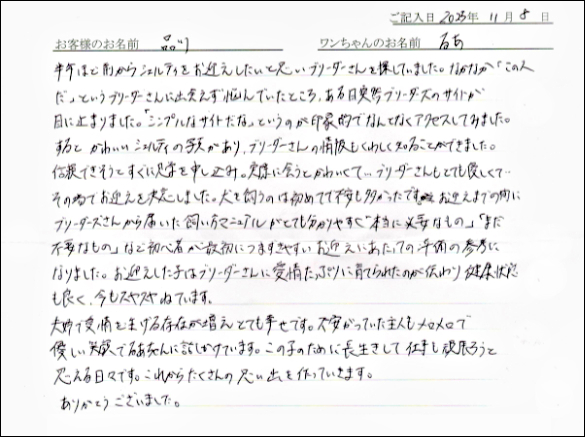 ご記入日 2023年 11月 8日
お客様のお名前 品川 ワンちゃんのお名前 るあ
半年ほど前からシェルティをお迎えしたいと思いブリーダーさんを探していました。なかなか「この人
だ」というブリーダーさんに出会えず悩んでいたところ、ある日史等ブリーダーズのサイトが
目に止まりました。「シンプルなサイトだな」というのが印象的でなんとなくアクセスしてみました。
すると かわいいシェルティの写真があり、ブリーダーさんの情報もくわしく知ることができました。
信頼できそうとすぐに見学を申し込み。実際に会うとかわいくて…ブリーダーさんもとても良くして…
その場でお迎えを決定しました。犬を飼うのは初めてで不安も多かったです お迎えまでの間に
ブリーダーズさんから届いた飼い方マニュアルがとても分かりやすく"本当に必要なもの」「まだ
不要なもの」など初心者が最初につまずきやすいお迎えにあたっての準備の参考に
なりました。お迎えした子はブリーダーさんに愛情たっぷりに育てられたのが伝わり健康状態
も良く、今もスヤスヤねています。
夫婦で愛情を注げる存在が増えとても幸せです。不安がっていた主人もメロメロで
優しい笑顔でるあちゃんに話しかけています。この子のために長生きして仕事も頑張ろうと
思える日々です。これからたくさんの思い出を作っていきます。
ありがとうございました。